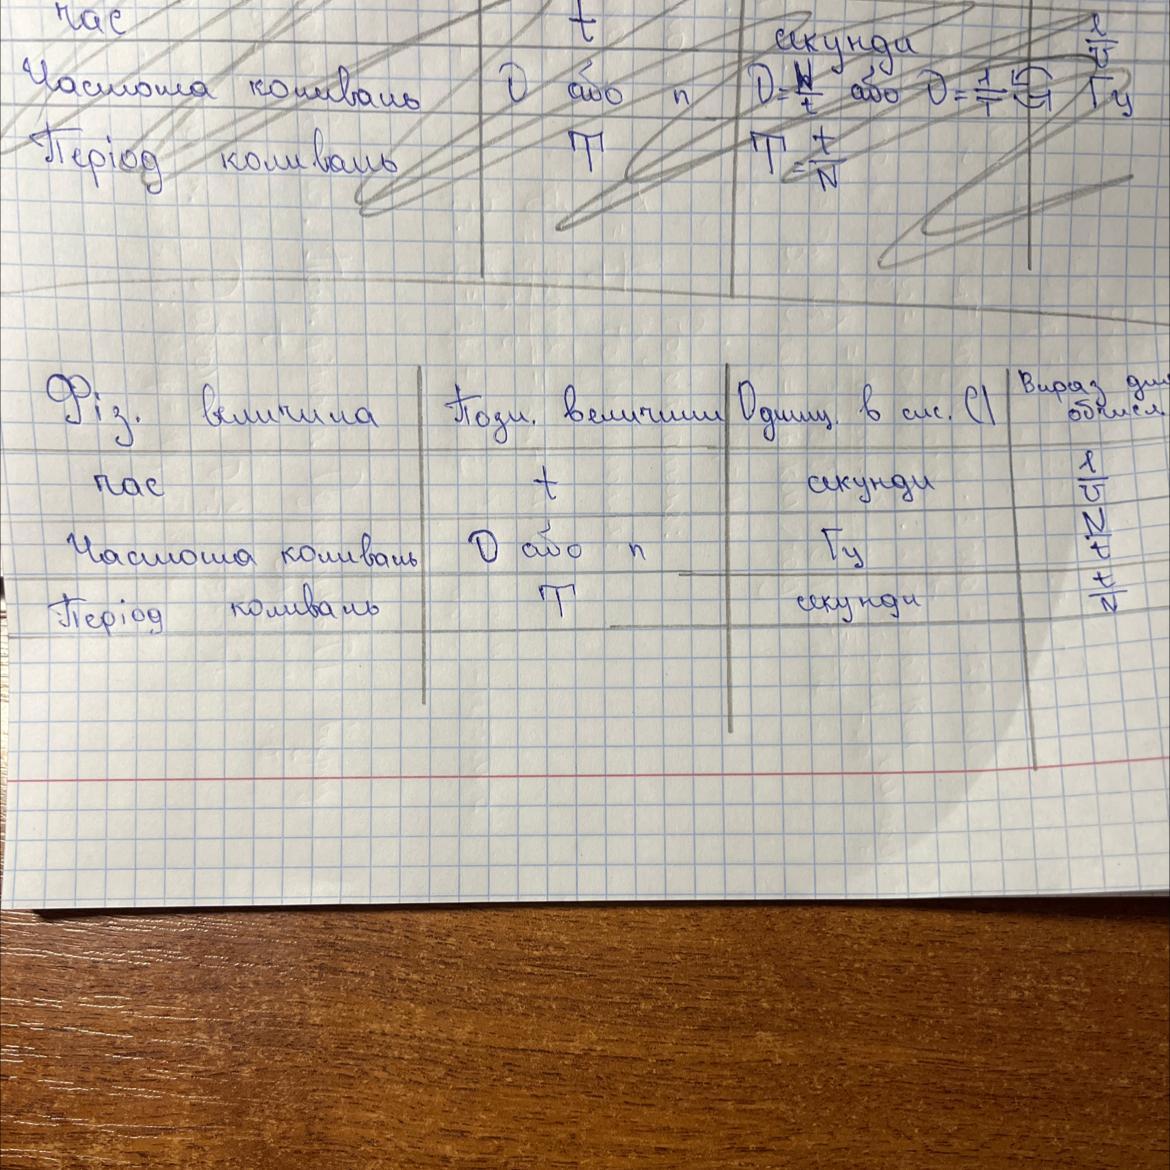 час t секунди l/v
Частота коливань ν або n ν=N/t або ν=1/T Гц
Період коливань T T=t/N
Фіз. величина Позн. величини Одиниц. в сис. СІ Вираз для обчисл.
час t секунди l/v
Частота коливань ν або n Гц N/t
Період коливань T секунди t/N